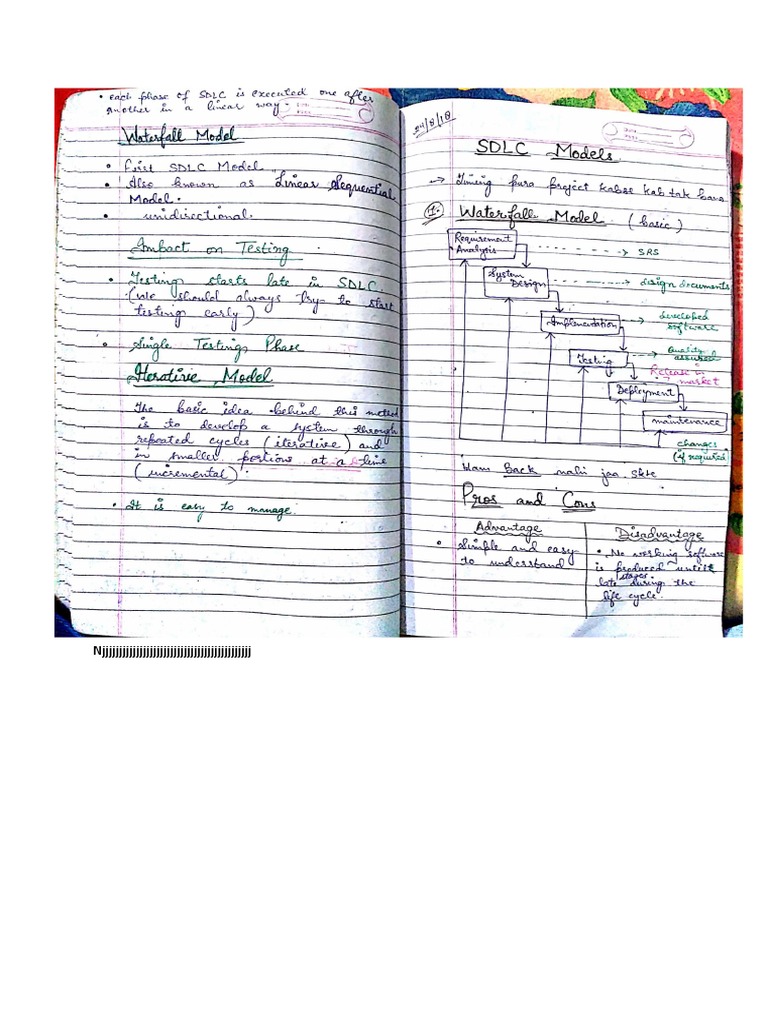 • each phase of SDLC is executed one after
another in a linear way.
Waterfall Model
• First SDLC Model
• Also known as Linear Sequential
Model.
• unidirectional.
Impact on Testing
• Testing starts late in SDLC.
(We should always try to start
testing early)
• Single Testing Phase
Iterative Model
The basic idea behind this method
is to develop a system through
repeated cycles (iterative) and
in smaller portions at a time
(incremental).
• It is easy to manage.
24/8/18
SDLC Models
→ Timing pura project kabse kab tak
1. Waterfall Model (basic)
Requirement
Analysis
SRS
System
Design
design documents
Implementation
developed
software
Testing
Quality
assured
Release in
market
Deployment
maintenance
changes
(if required)
Ham back nahi jaa skte
Pros and Cons
Advantage
• Simple and easy
to understand
Disadvantage
• No working software
is produced until
stages
late during the
life cycle.
Njjjjjjjjjjjjjjjjjjjjjjjjjjjjjjjjjjjjjjjjj